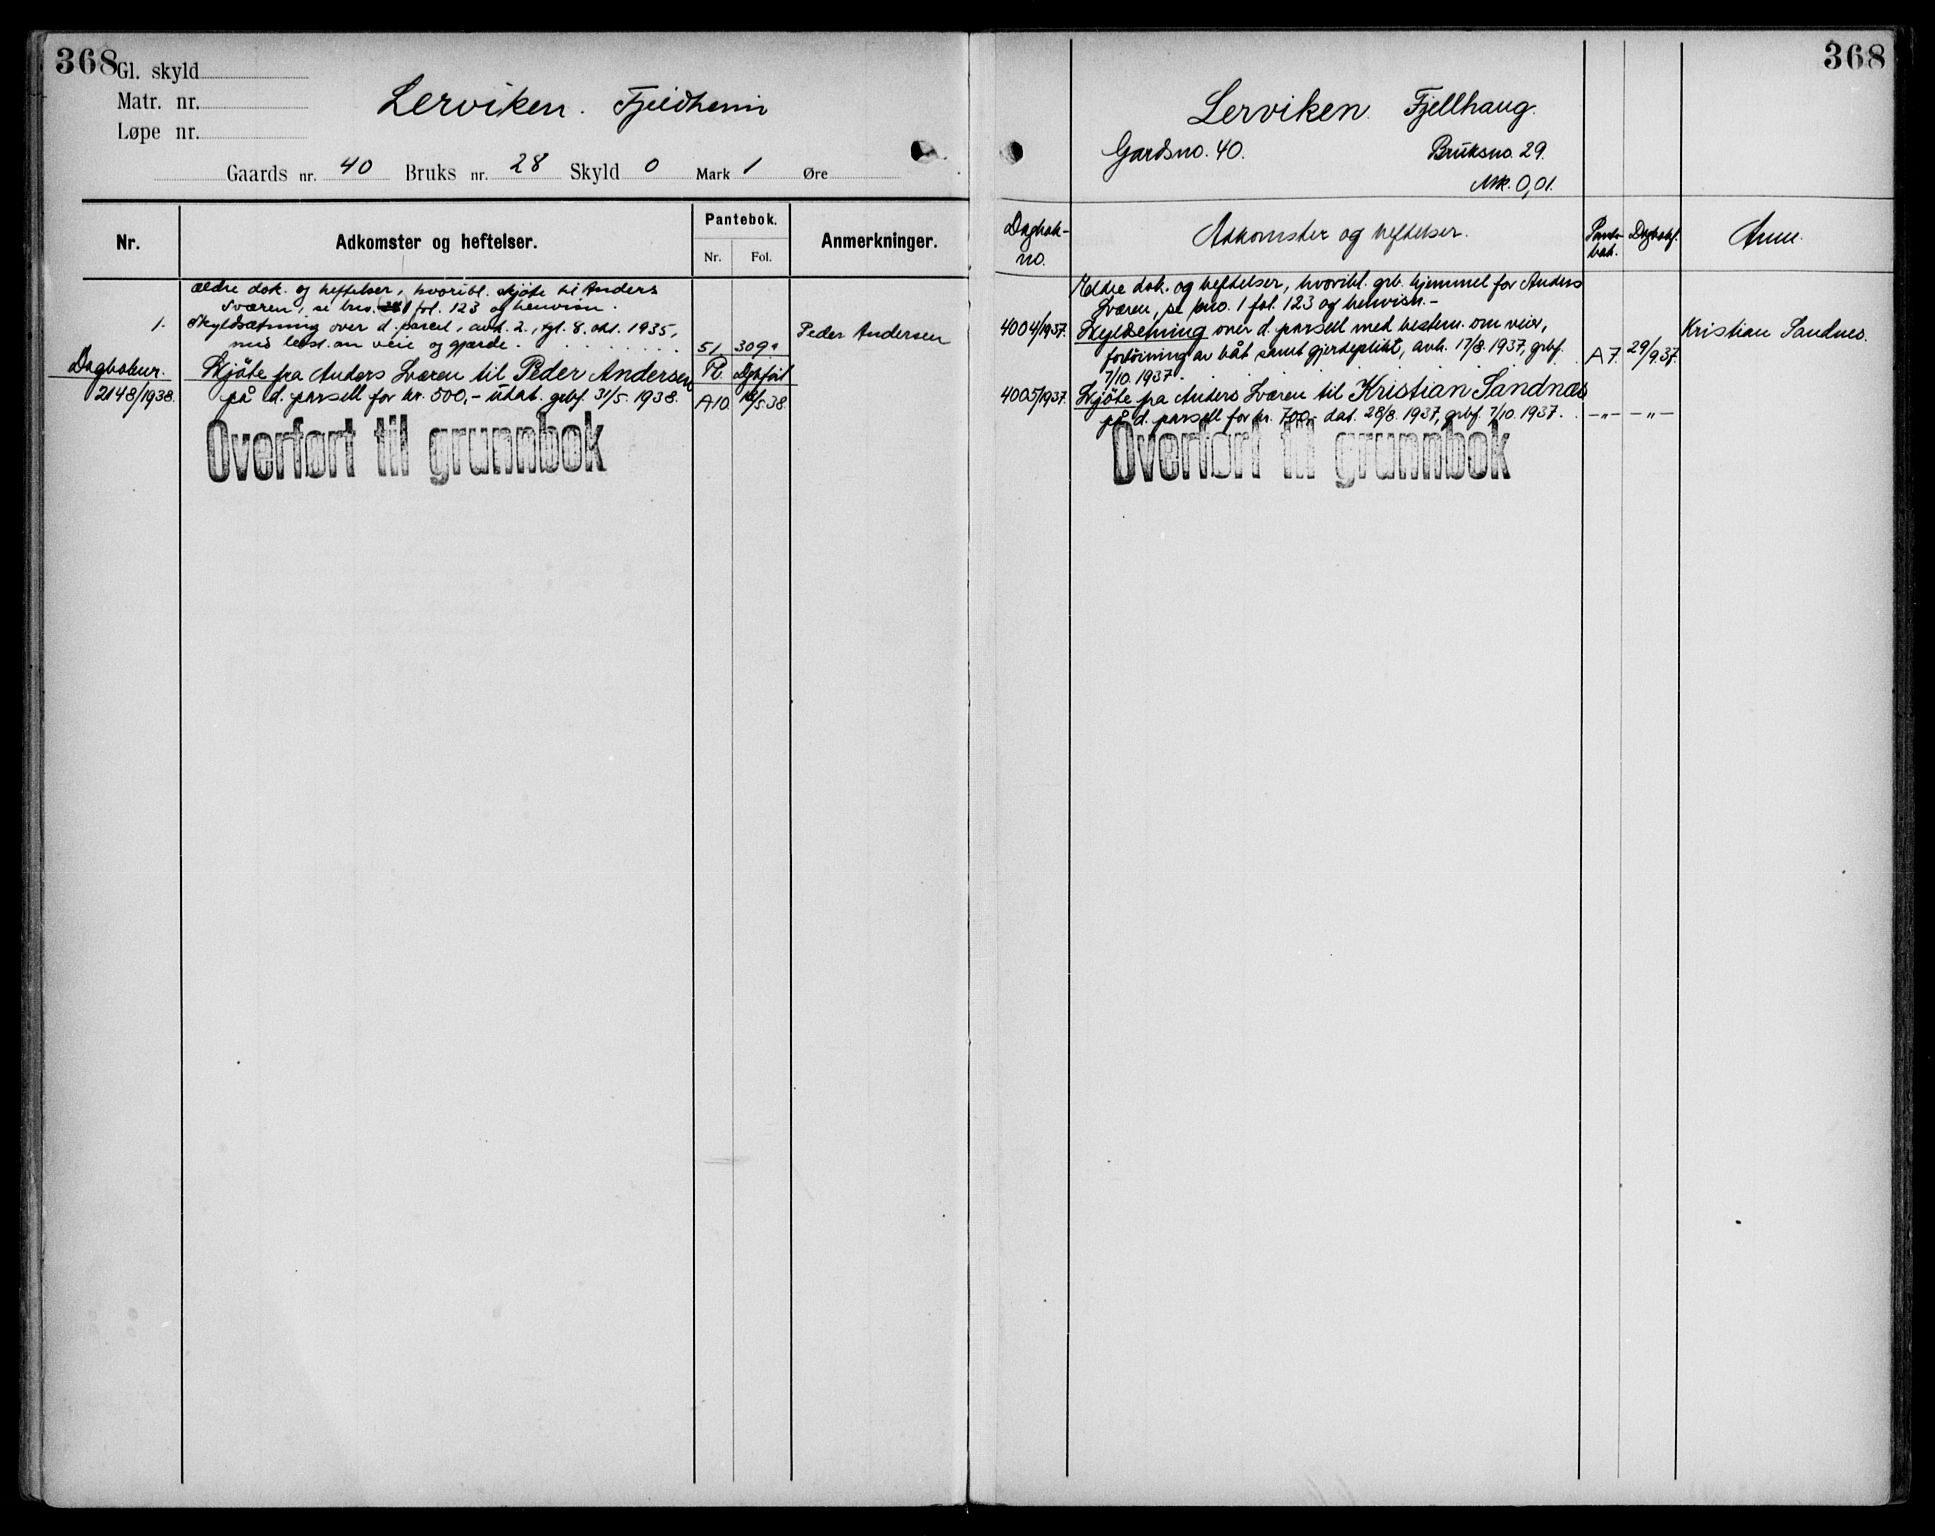 368
Gl. skyld
Matr. nr.
Løpe nr.
Lerviken. Fjeldheim
Gaards nr. 40 Bruks nr. 28 Skyld 0 Mark 1 Øre
Nr.
Adkomster og heftelser.
Pantebok.
Nr. Fol.
Anmerkninger.
ældre dok. og heftelser, hvoribl. skjøte til Anders
Sværen, se bns. 1 fol. 123 og henvisn.
1. Skyldsætning over d. parcel, avh. 2., tgl. 8. okt. 1935,
med best. om veie og gjærde. 51 309a
Peder Andersen
Dagboknr. Skjøte fra Anders Sværen til Peder Andersen Pb. Dgbført
2148/1938. på d. parsell for kr. 500,- udat. grbf. 31/5. 1938. A10. /5.38.
Overført til grunnbok
368
Lerviken. Fjellhaug.
Gardsno. 40. Bruksno. 29.
Mk. 0,01.
Dagbok-
no.
Adkomster og heftelser.
Pante-
bok.
Dagbokf.
Anm.
Eldre dok. og heftelser, hvoribl. grb. hjemmel for Anders
Sværen, se bno. 1 fol. 123 og henvisn.-
4004/1937. Skyldsetning over d. parsell med bestem. om veier, Kristian Sandnes.
fortöining av båt samt gjerdeplikt, avh. 17/8. 1937, grbf. A 7. 29/9.37.
7/10. 1937.
4005/1937. Skjøte fra Anders Sværen til Kristian Sandnes
på d. parsell for kr. 700,- dat. 28/8. 1937, grbf. 7/10. 1937. -„- -„-
Overført til grunnbok